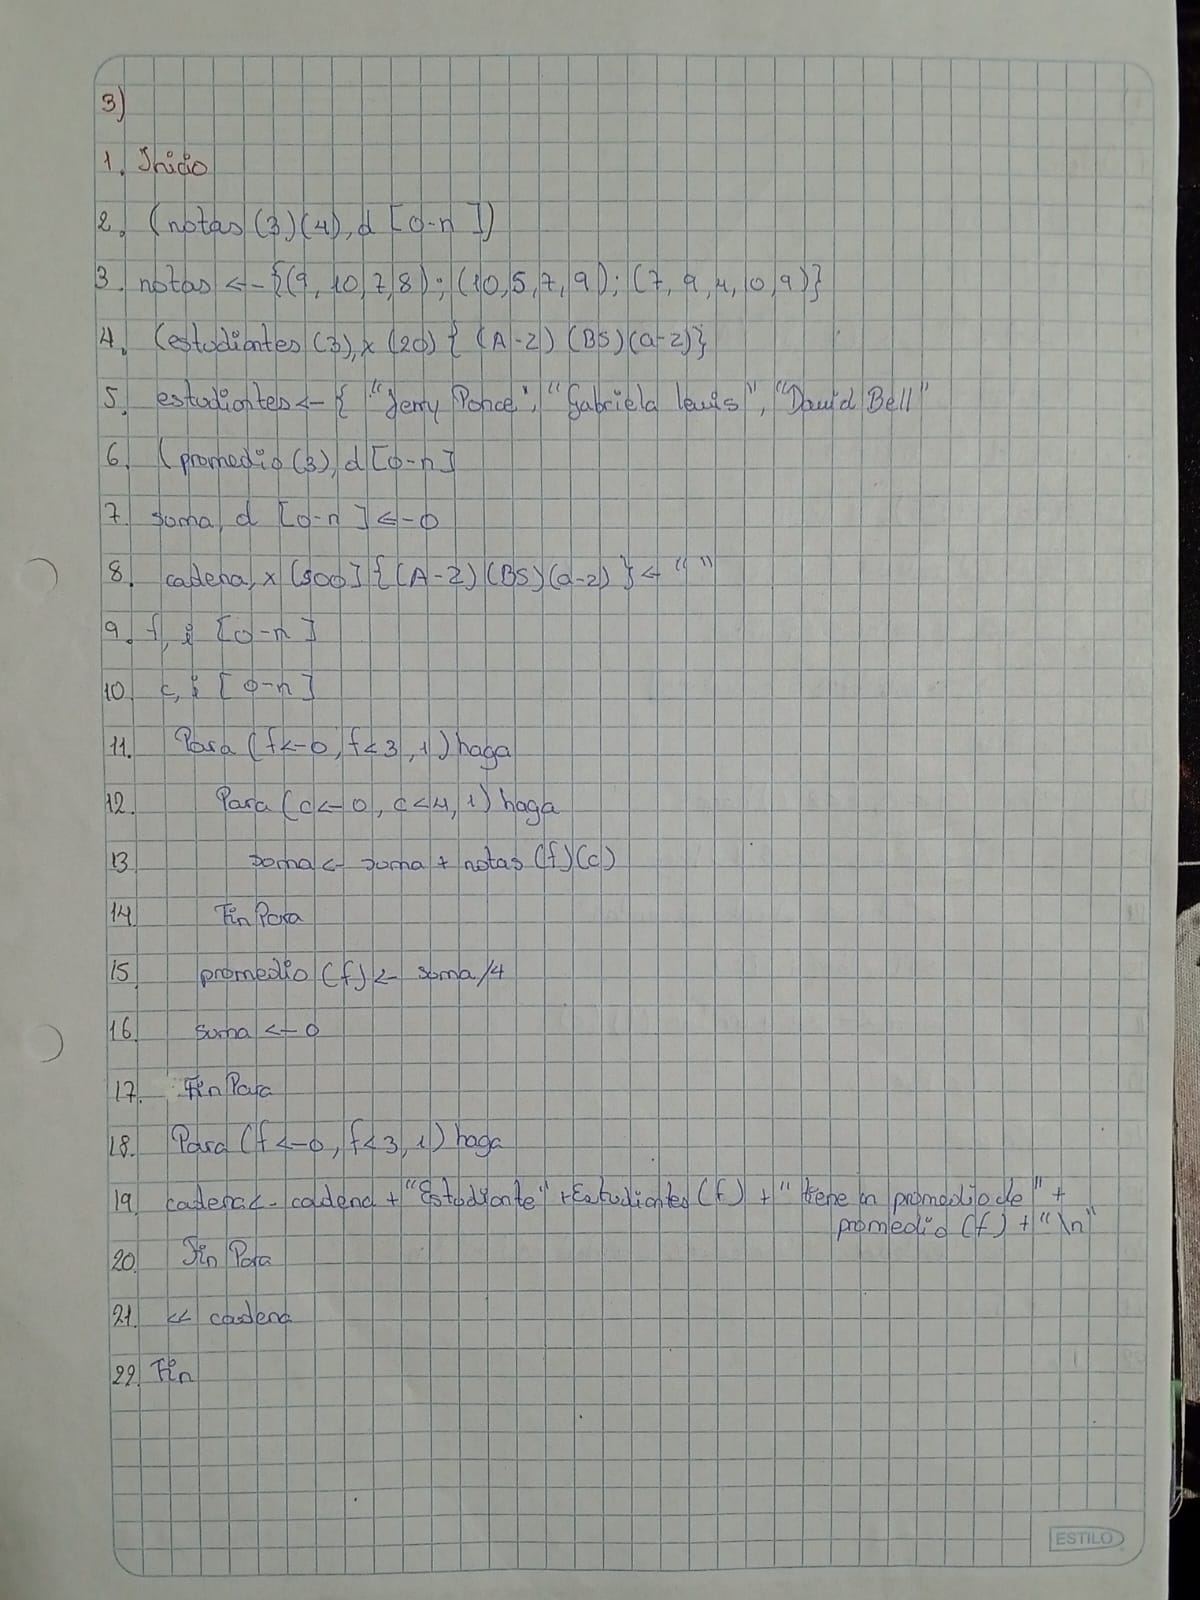 3)
1. Inicio
2. (notas (3)(4), d [0-n])
3. notas <- {(9, 10, 7, 8); (10, 5, 7, 9); (7, 9, 4, 10, 9)}
4. (estudiantes (3), x (20) { (A-Z) (BS)(a-z)}
5. estudiantes <- { "Jerry Ponce", "Gabriela lewis", "David Bell"
6. (promedio (3), d [0-n]
7. suma, d [0-n] <- 0
8. cadena, x (300] {(A-Z) (BS)(a-z) } <- " "
9. f, i [0-n]
10. c, i [0-n]
11. Para (f <- 0, f < 3, 1) haga
12. Para (c <- 0, c < 4, 1) haga
13 suma <- suma + notas (f)(c)
14 Fin Para
15 promedio (f) <- suma /4
16. suma <- 0
17. Fin Para
18. Para (f <- 0, f < 3, 1) haga
19. cadena <- cadena + "Estudiante" + Estudiantes (f) + " tiene un promedio de " +
promedio (f) + "\n"
20. Fin Para
21. << cadena
22. Fin
ESTILO